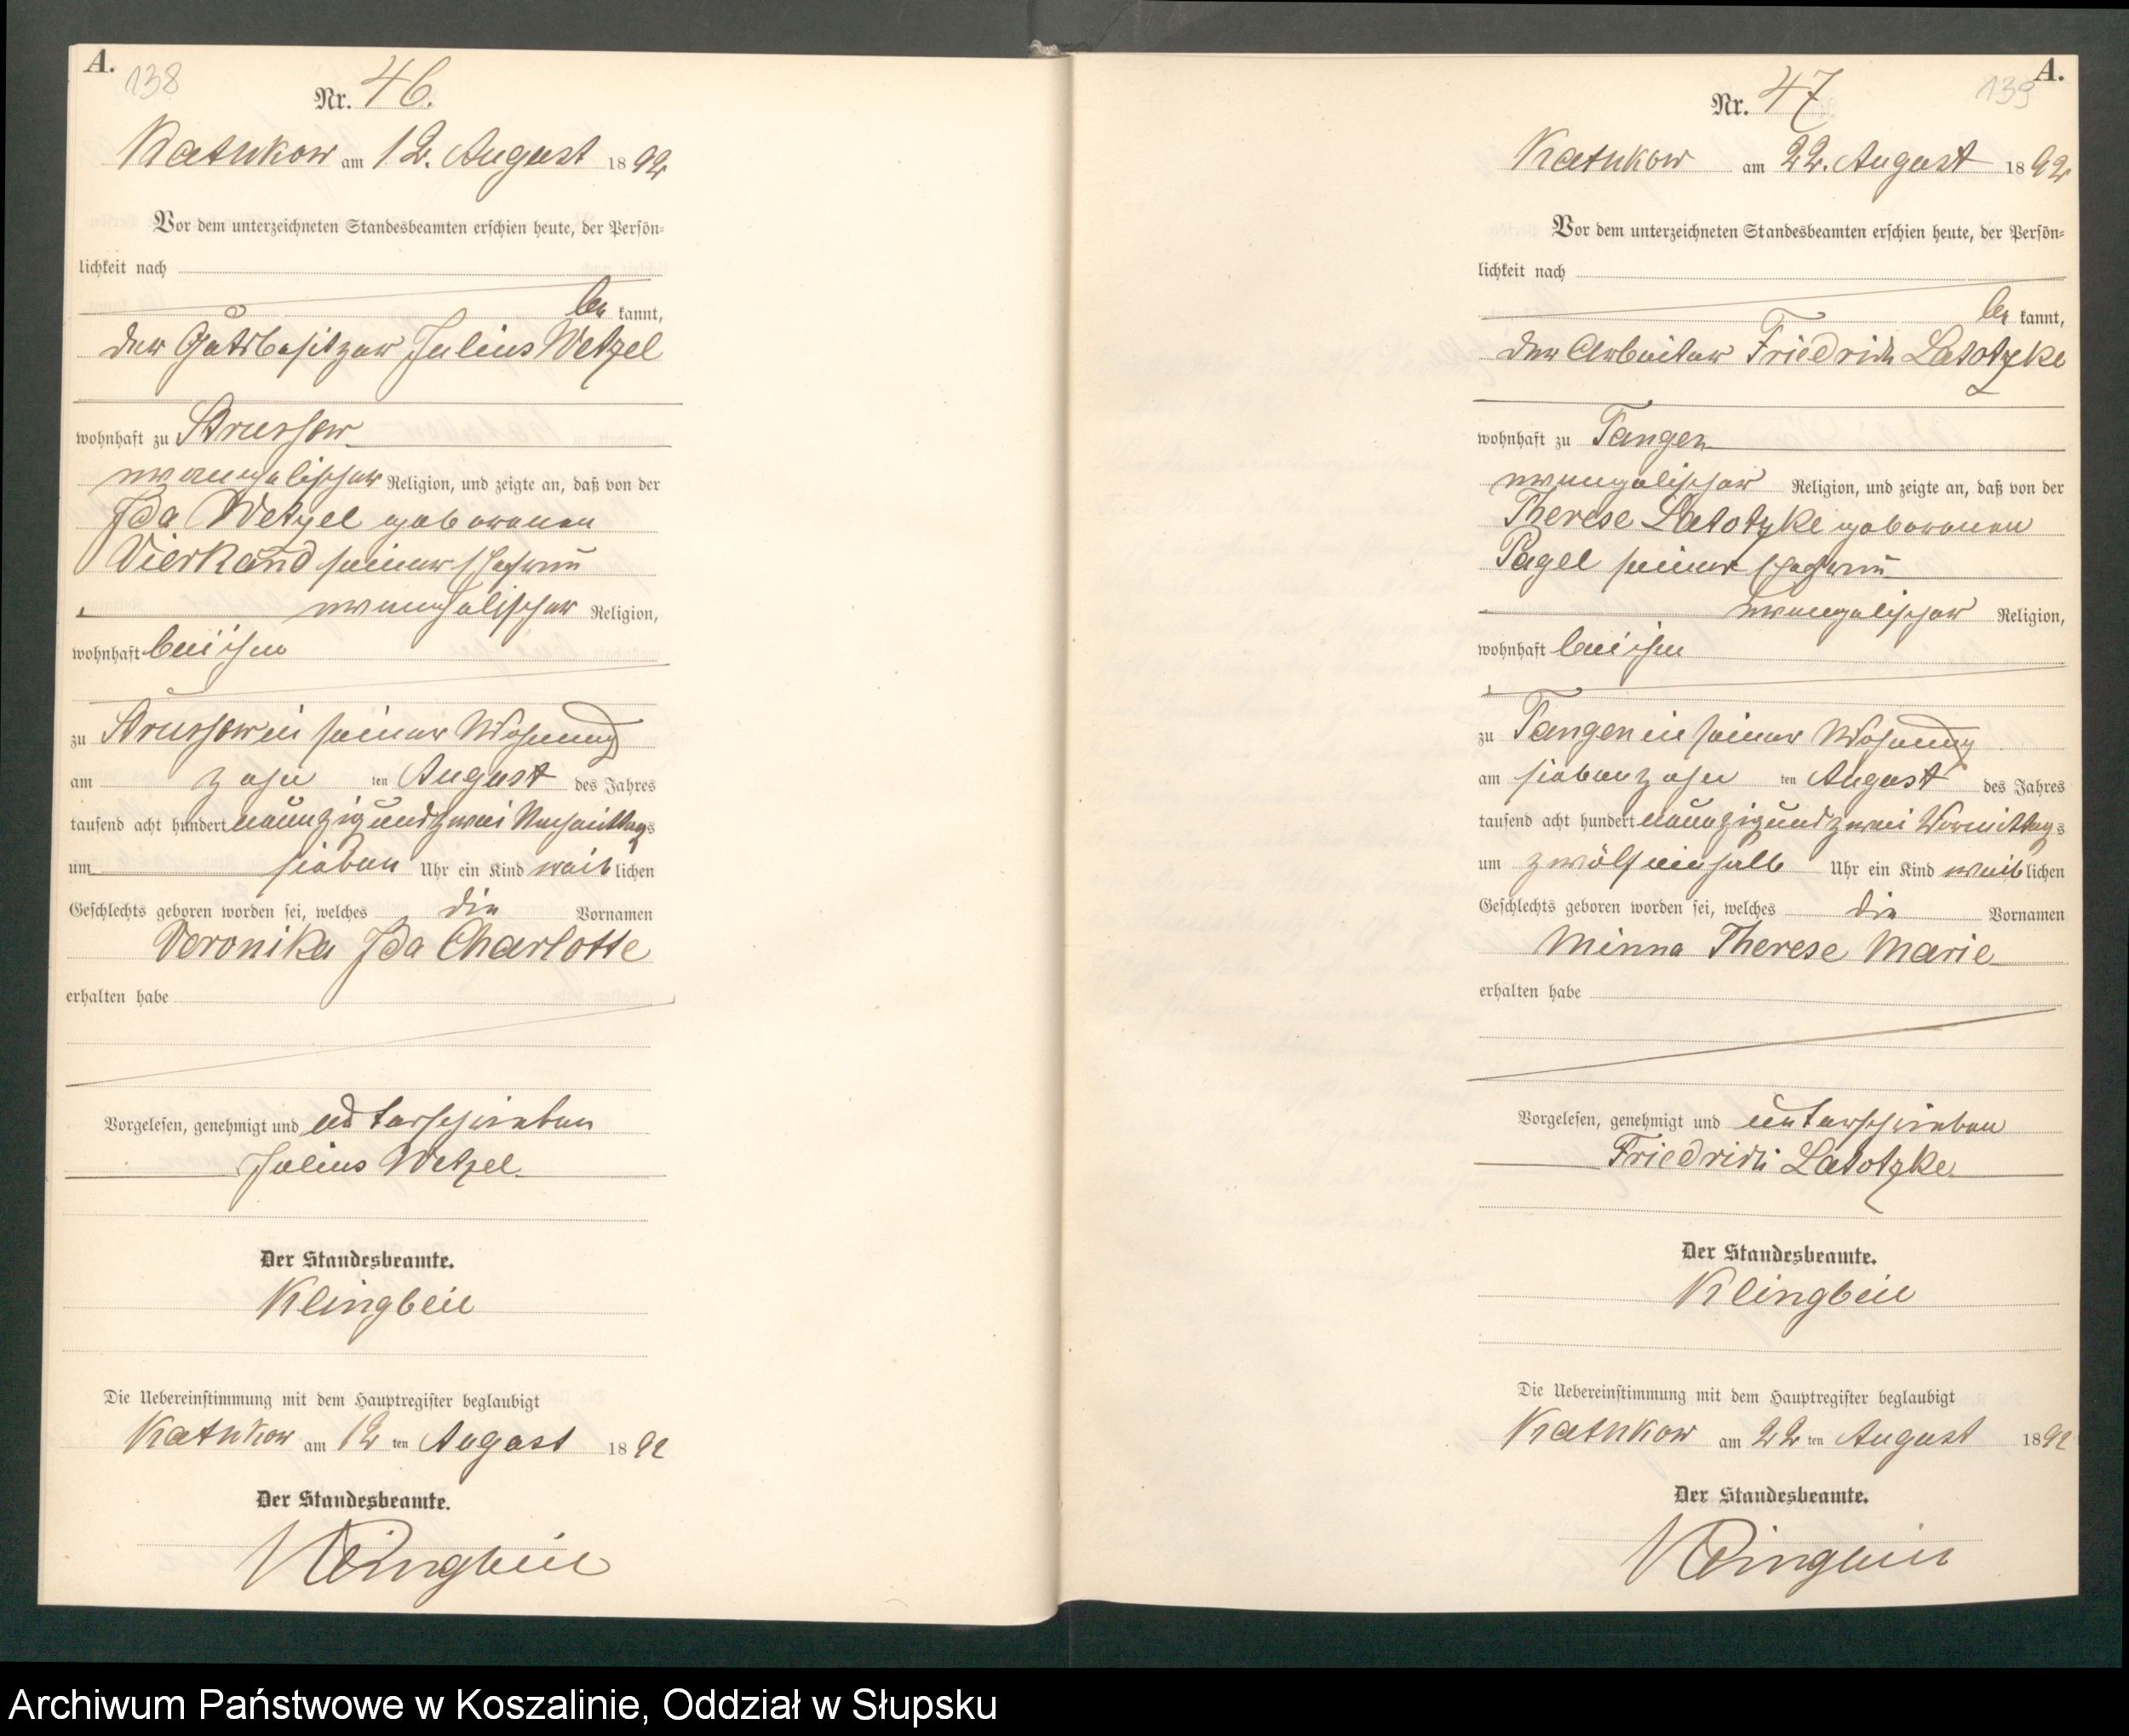 A.
138
Nr. 46.
Kathkow am 12. August 1892
Vor dem unterzeichneten Standesbeamten erschien heute, der Persön-
lichkeit nach
be kannt,
der Gutsbesitzer Julius Wetzel
wohnhaft zu Strussow
evangelischer Religion, und zeigte an, daß von der
Ida Wetzel geborenen
Vierkand seiner Ehefrau
evangelischer Religion,
wohnhaft bei ihm
zu Strussow in seiner Wohnung
am zehn ten August des Jahres
tausend acht hundert neunzig und zwei Nachmittags
um sieben Uhr ein Kind weib lichen
Geschlechts geboren worden sei, welches die Vornamen
Veronika Ida Charlotte
erhalten habe
Vorgelesen, genehmigt und unterschrieben
Julius Wetzel
Der Standesbeamte.
Klingbeil
Die Uebereinstimmung mit dem Hauptregister beglaubigt
Kathkow am 12 ten August 1892
Der Standesbeamte.
Klingbeil
A.
139
Nr. 47
Kathkow am 22. August 1892
Vor dem unterzeichneten Standesbeamten erschien heute, der Persön-
lichkeit nach
be kannt,
der Arbeiter Friedrich Latotzke
wohnhaft zu Tangen
evangelischer Religion, und zeigte an, daß von der
Therese Latotzke geborenen
Pagel seiner Ehefrau
evangelischer Religion,
wohnhaft bei ihm
zu Tangen in seiner Wohnung
am siebenzehn ten August des Jahres
tausend acht hundert neunzig und zwei Vormittags
um zwölfeinhalb Uhr ein Kind weib lichen
Geschlechts geboren worden sei, welches die Vornamen
Minna Therese Marie
erhalten habe
Vorgelesen, genehmigt und unterschrieben
Friedrich Latotzke
Der Standesbeamte.
Klingbeil
Die Uebereinstimmung mit dem Hauptregister beglaubigt
Kathkow am 22 ten August 1892
Der Standesbeamte.
Klingbeil
Archiwum Państwowe w Koszalinie, Oddział w Słupsku